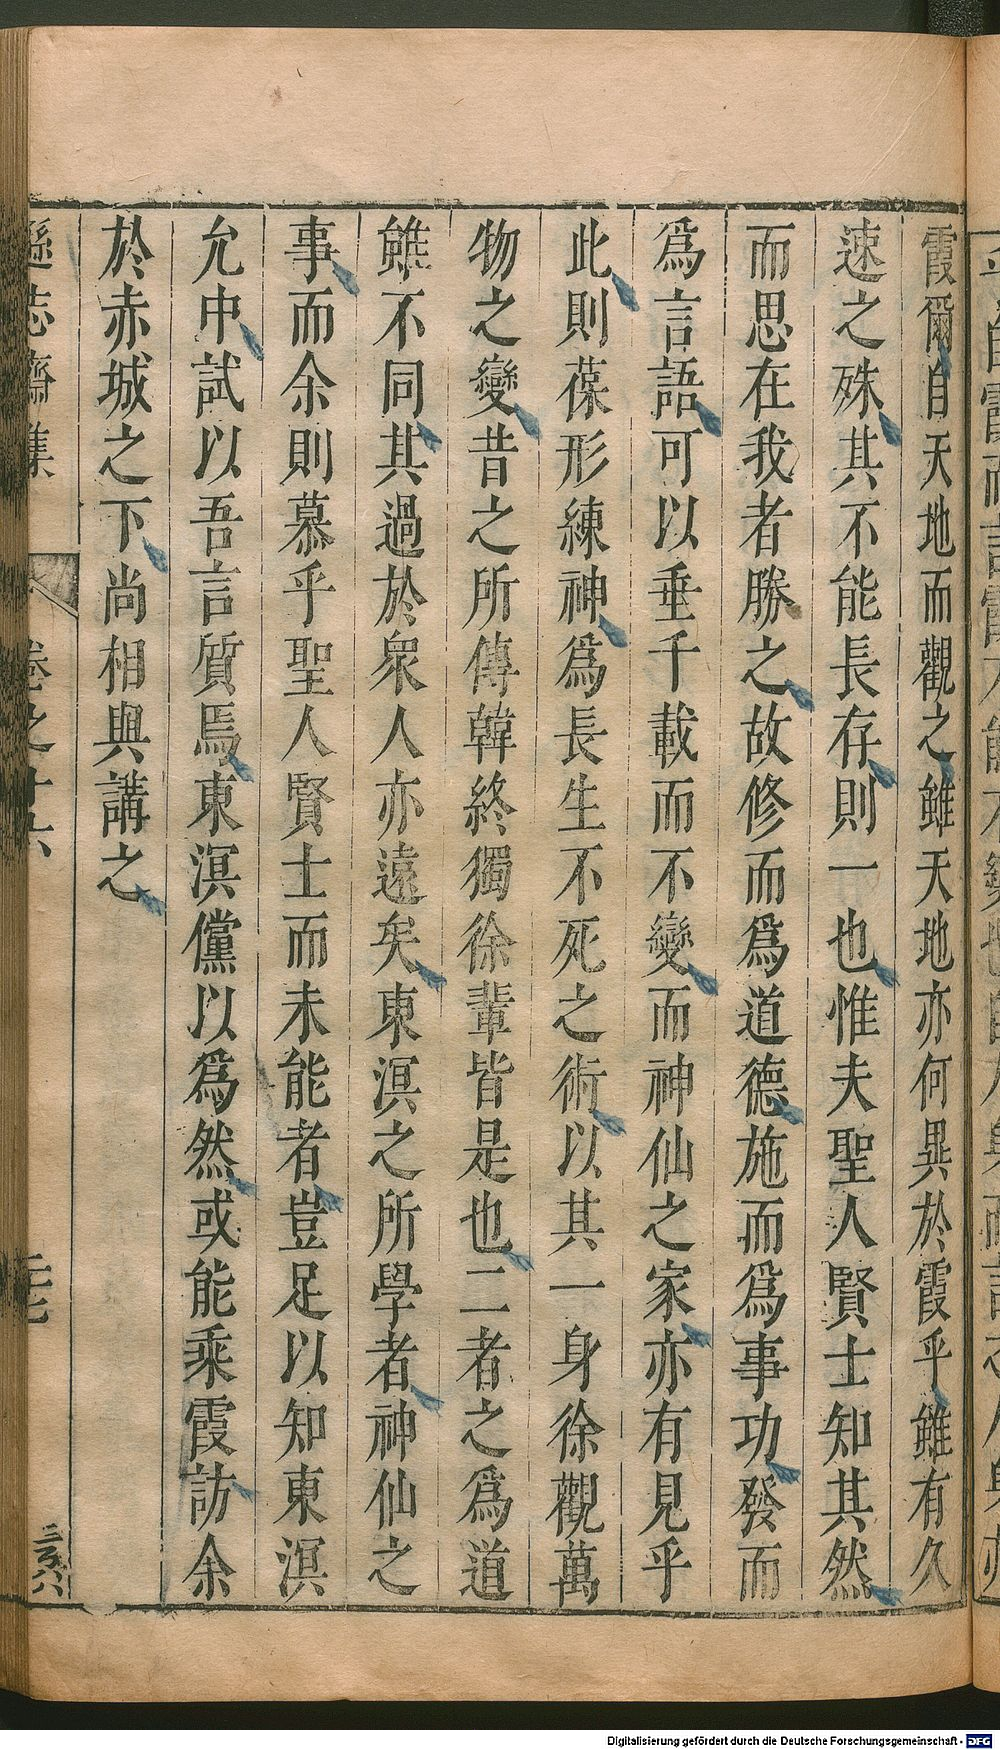 霞爾自天地而觀之雖天地亦何異於霞乎雖有久
速之殊其不能長存則一也惟夫聖人賢士知其然
而思在我者勝之故修而爲道德施而爲事功發而
爲言語可以垂千載而不變而神仙之家亦有見乎
此則葆形練神爲長生不死之術以其一身徐觀萬
物之變昔之所傳韓終獨徐輩皆是也二者之爲道
雖不同其過於衆人亦遠矣東溟之所學者神仙之
事而余則慕乎聖人賢士而未能者豈足以知東溟
允中試以吾言質焉東溟儻以爲然或能乘霞訪余
於赤城之下尚相與講之
遜志齋集 卷之十六 二七
Digitalisierung gefördert durch die Deutsche Forschungsgemeinschaft - DFG